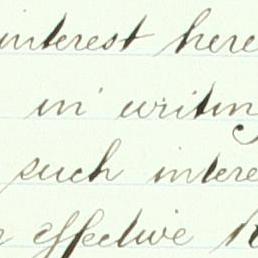 interest here
in writin
such intere
effective